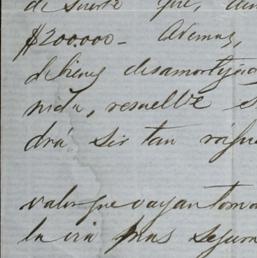 de suerte que,
$200.000- Ademas,
de bienes desamortiza
nida, resuelve s
drá ser tan
valor que vayan toma
la via mas segura